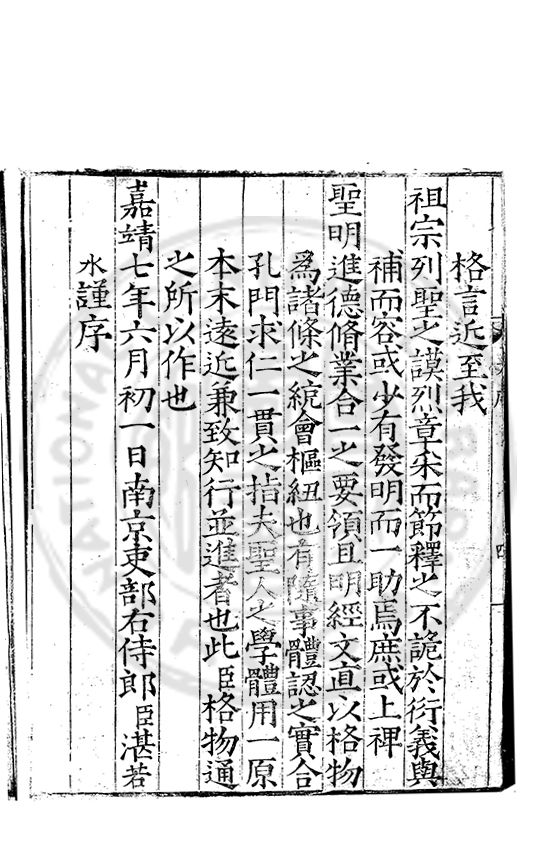 格言近至我
祖宗列聖之謨烈章采而節釋之不詭於衍義與
補而容或少有發明而一助焉庶或上裨
聖明進德脩業合一之要領且明經文直以格物
爲諸條之統會樞紐也有隨事體認之實合
孔門求仁一貫之指夫聖人之學體用一原
本末遠近兼致知行並進者也此臣格物通
之所以作也
嘉靖七年六月初一日南京吏部右侍郎臣湛若
水謹序
四